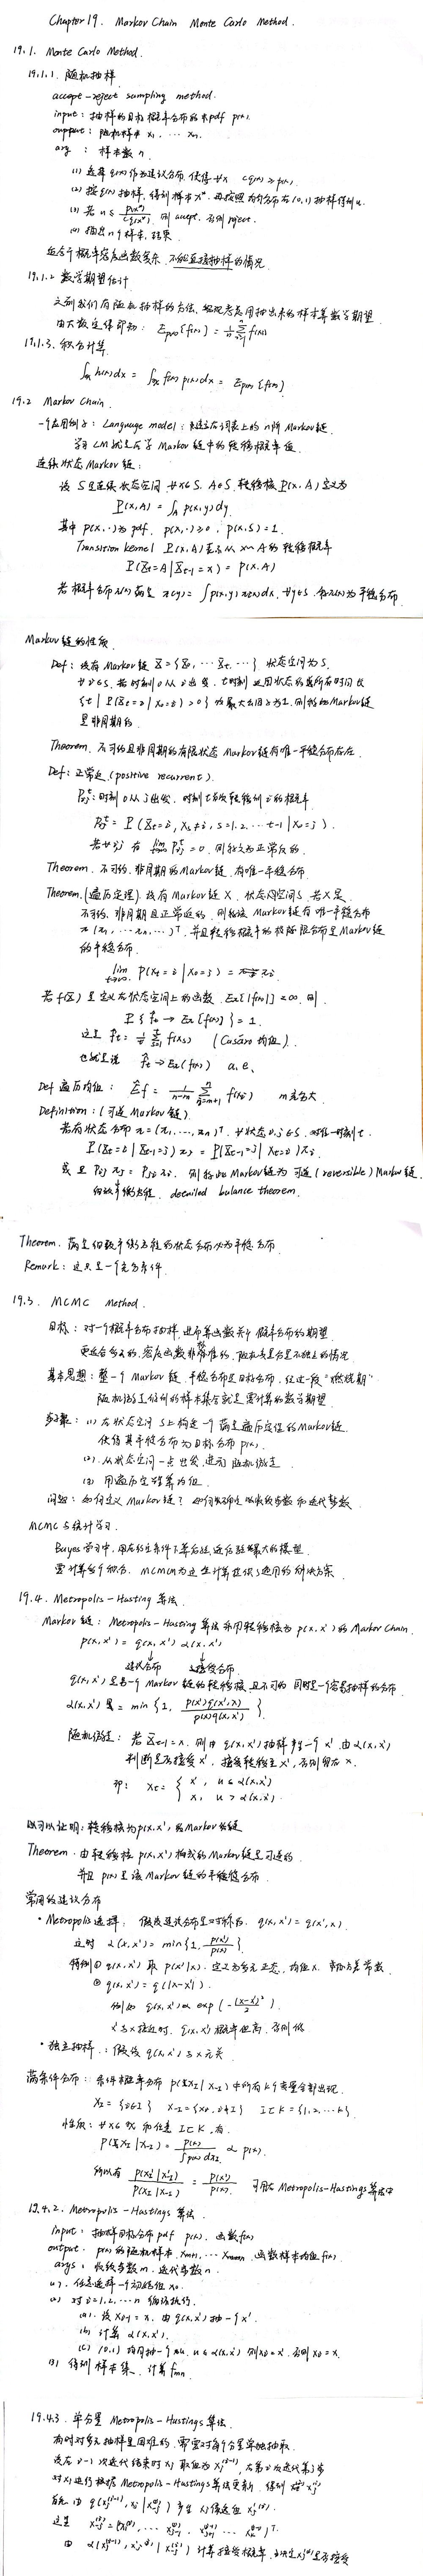 Chapter 19. Markov Chain Monte Carlo Method.
19.1. Monte Carlo Method.
19.1.1. 随机抽样
accept-reject sampling method.
input: 抽样的目标概率分布的 pdf p(x).
output: 随机样本 x1, ... xn.
arg : 样本数 n.
(1) 选择 q(x) 作为建议分布, 使得 ∀x cq(x) ≥ p(x).
(2) 按 q(x) 抽样, 得到样本 x*, 再按照均匀分布在 (0,1) 抽样得到 u.
(3) 若 u ≤ p(x*)/cq(x*), 则 accept, 否则 reject.
(4) 抽出 n 个样本, 结束.
适合于概率密度函数复杂, 不能直接抽样的情况.
19.1.2 数学期望估计
由大数定律即知: Ep(x)[f(x)] = 1/n Σ f(xi)
19.1.3. 积分计算.
∫x h(x)dx = ∫x f(x) p(x)dx = Ep(x)[f(x)]
19.2 Markov Chain.
一个应用例子: Language model: 建立在词表上的 n 阶 Markov 链.
学习 LM 就是在学 Markov 链中的转移概率值.
连续状态 Markov 链:
设 S 是连续状态空间, ∀x∈S, A⊂S, 转移核 P(x,A) 定义为
P(x,A) = ∫A p(x,y)dy.
其中 p(x,·) 为 pdf, p(x,·) ≥ 0, P(x,S) = 1.
Transition kernel P(x,A) 表示从 x→A 的转移概率
P(Xt=A|Xt-1=x) = p(x,A)
若概率分布 π(x) 满足 π(y) = ∫p(x,y)π(x)dx, ∀y∈S, 称 π(x) 为平稳分布.
Markov 链的性质.
Def: 设有 Markov 链 X = {X0, ... Xt, ...} 状态空间为 S.
{t | P(Xt=i | X0=i) > 0} 的最大公因子为 1, 则称此 Markov 链
是非周期的.
Theorem. 不可约且非周期的有限状态 Markov 链有唯一平稳分布存在.
Def: 正常返 (positive recurrent).
Pij^t: 时刻 0 从 j 出发, 时刻 t 首次转移到 i 的概率.
Pij^t = P(Xt=i, Xs≠i, s=1,2,...t-1 | X0=j).
Theorem. 不可约, 非周期的 Markov 链, 有唯一平稳分布.
Theorem. (遍历定理). 设有 Markov 链 X, 状态空间 S, 若 X 是
不可约, 非周期且正常返的, 则该 Markov 链有唯一平稳分布
π = (π1, ... πn, ...)^T, 并且转移概率的极限分布是 Markov 链
的平稳分布.
lim t→∞ P(Xt=i | X0=j) = πi.
若 f(X) 是定义在状态空间上的函数, Eπ[|f(x)|] < ∞, 则
P{f̂t → Eπ[f(x)]} = 1.
这里 f̂t = 1/t Σ f(xs) (Cesàro 均值).
也就是说 f̂t → Eπ(f(x)) a.e.
Def 遍历均值: Êf = 1/(n-m) Σ f(xi) m 充分大
Definition: (可逆 Markov 链).
若有状态分布 π = (π1, ..., πn)^T, ∀状态 i,j∈S, 对任一时刻 t.
P(Xt=i | Xt-1=j) πj = P(Xt-1=j | Xt=i) πi.
或是 Pij πj = Pji πi. 则称此 Markov 链为可逆 (reversible) Markov 链,
细致平衡方程. detailed balance theorem.
Theorem. 满足细致平衡方程的状态分布必为平稳分布.
Remark: 这只是一个充分条件.
19.3. MCMC Method.
目标: 对一个概率分布抽样, 进而算函数关于概率分布的期望.
基本思想: 整一个 Markov 链, 平稳分布是目标分布, 经过一段"燃烧期"
步骤: (1) 在状态空间 S 上构造一个满足遍历定理的 Markov 链.
使得其平稳分布为目标分布 p(x).
(2) 从状态空间一点出发, 进行随机游走.
(3) 用遍历定理算均值.
MCMC 与统计学习.
19.4. Metropolis-Hasting 算法.
Markov 链: Metropolis-Hasting 算法采用转移核为 p(x,x') 的 Markov Chain.
p(x,x') = q(x,x') α(x,x')
建议分布 接受分布.
q(x,x') 是另一个 Markov 链的转移核, 且不可约, 同时是一个容易抽样的分布.
α(x,x') = min {1, p(x')q(x',x) / p(x)q(x,x')}.
随机游走: 若 Xt-1=x, 则由 q(x,x') 抽样产生一个 x', 由 α(x,x')
判断是否接受 x', 接受转移至 x', 否则留在 x.
即: Xt = { x', u ≤ α(x,x')
x, u > α(x,x').
可以证明: 转移核为 p(x,x') 的 Markov 链
Theorem. 由转移核 p(x,x') 构成的 Markov 链是可逆的.
并且 p(x) 是该 Markov 链的平稳分布.
常用的建议分布
• Metropolis 选择: 假设建议分布是对称的. q(x,x') = q(x',x).
这时 α(x,x') = min{1, p(x')/p(x)}.
特例 ① q(x,x') 取 p(x'|x). 定义为多元正态, 均值 x, 协方差常数.
② q(x,x') = q(|x-x'|).
例如 q(x,x') ∝ exp(-(x-x')²/2).
x' 与 x 接近时, q(x,x') 概率值高, 否则低
• 独立抽样: 假设 q(x,x') 与 x 无关
满条件分布: 条件概率分布 p(xI | x-I) 中所有 k 个变量全部出现.
xI = {xi, i∈I} x-I = {xi, i∉I} I⊂K = {1,2,...k}.
性质: ∀x∈X 和任意 I⊂K, 有.
p(xI | x-I) = p(x) / ∫p(x) dxI ∝ p(x).
所以有 p(xI' | x-I') / p(xI | x-I) = p(x')/p(x). 可用在 Metropolis-Hastings 算法中
19.4.2. Metropolis-Hastings 算法.
input: 抽样目标分布 pdf p(x). 函数 f(x)
output. p(x) 的随机样本 xm+1, ... xn, 函数样本均值 fmn.
args: 收敛步数 m, 迭代步数 n.
(1). 任意选择一个初始值 x0.
(2) 对 i=1,2,...n 循环执行.
(a). 设 xi-1=x, 由 q(x,x') 抽一个 x'.
(b) 计算 α(x,x').
(c) (0,1) 均匀抽一个 u, u ≤ α(x,x') 则 xi=x', 否则 xi=x.
(3) 得到样本集, 计算 fmn.
19.4.3. 单分量 Metropolis-Hastings 算法.
有时对多元抽样是困难的, 需要对每个分量单独抽取.
对 xj 进行根据 Metropolis-Hastings 算法更新, 得到 xj^(i)
首先由 q(xj^(i-1), xj | x-j^(i)) 产生 xj 候选值 xj'^(i).